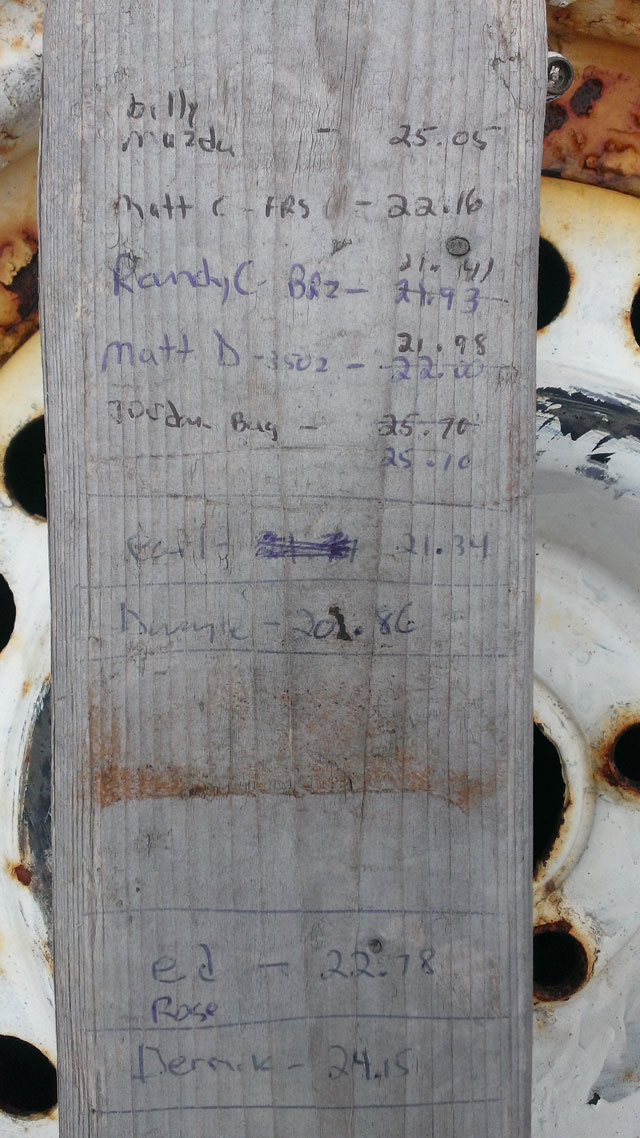 billy
mazda - 25.05
Matt C - FRS - 22.16
21.141
RandyC - BRZ - 21.93
21.98
Matt D - 350Z - 22.00
Jordan Bug - 25.70
25.10
21.34
Dwayne - 20.86
ed - 22.78
Rose
Dermik - 24.15